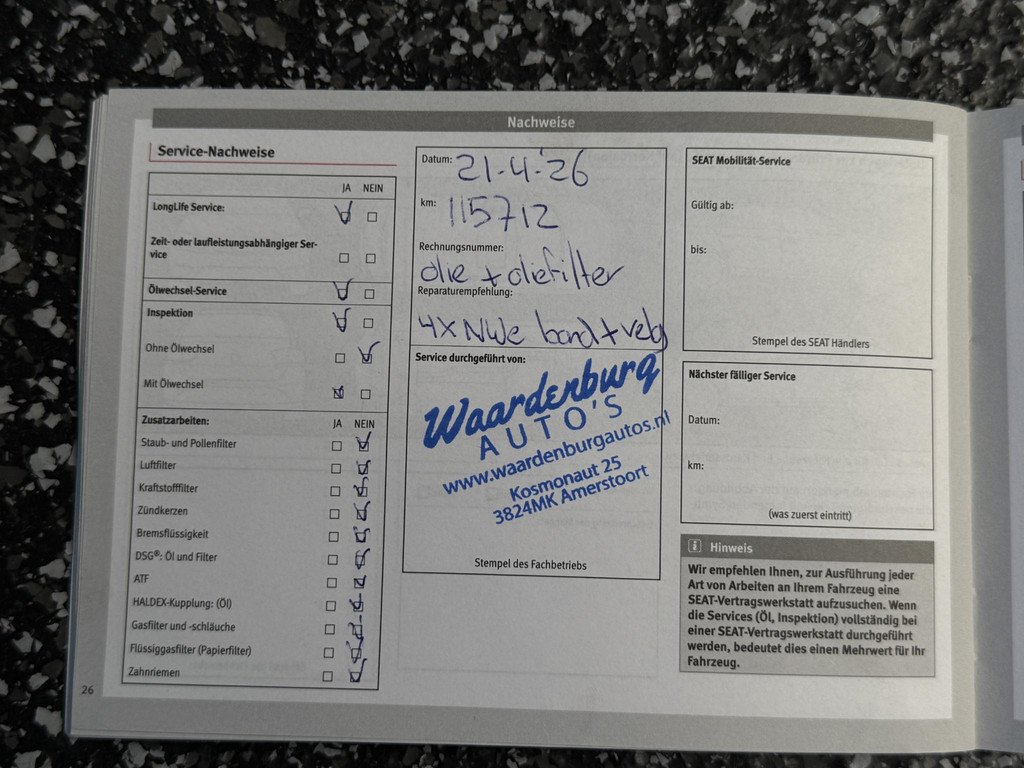 Nachweise
Service-Nachweise
JA NEIN
LongLife Service:
Zeit- oder laufleistungsabhängiger Ser-
vice
Ölwechsel-Service
Inspektion
Ohne Ölwechsel
Mit Ölwechsel
Zusatzarbeiten: JA NEIN
Staub- und Pollenfilter
Luftfilter
Kraftstofffilter
Zündkerzen
Bremsflüssigkeit
DSG®: Öl und Filter
ATF
HALDEX-Kupplung: (Öl)
Gasfilter und -schläuche
Flüssiggasfilter (Papierfilter)
Zahnriemen
26
Datum: 21-4-'26
km: 115712
Rechnungsnummer:
olie + oliefilter
Reparaturempfehlung:
4x NWe band + velg
Service durchgeführt von:
Waardenburg
AUTO'S
www.waardenburgautos.nl
Kosmonaut 25
3824MK Amersfoort
Stempel des Fachbetriebs
SEAT Mobilität-Service
Gültig ab:
bis:
Stempel des SEAT Händlers
Nächster fälliger Service
Datum:
km:
(was zuerst eintritt)
i Hinweis
Wir empfehlen Ihnen, zur Ausführung jeder
Art von Arbeiten an Ihrem Fahrzeug eine
SEAT-Vertragswerkstatt aufzusuchen. Wenn
die Services (Öl, Inspektion) vollständig bei
einer SEAT-Vertragswerkstatt durchgeführt
werden, bedeutet dies einen Mehrwert für Ihr
Fahrzeug.